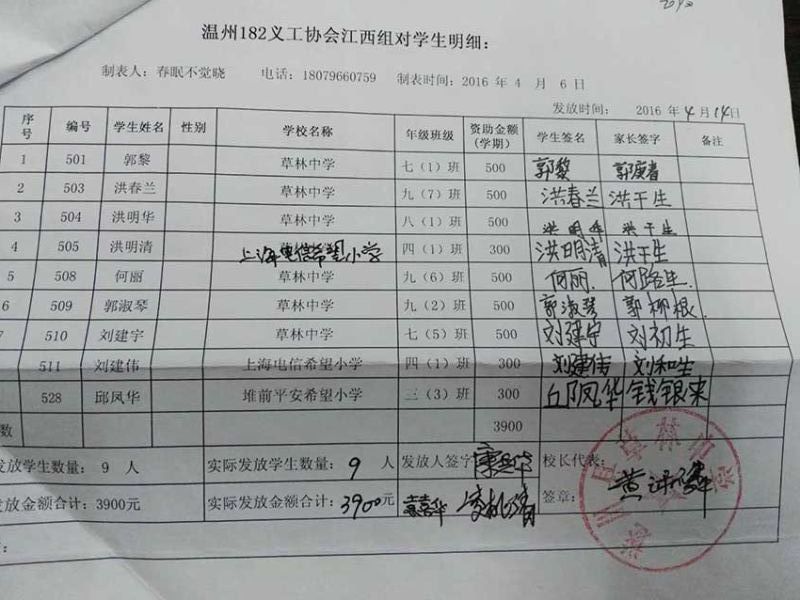 温州182义工协会江西组对学生明细：
制表人：春眠不觉晓 电话：18079660759 制表时间：2016 年 4 月 6 日
发放时间： 2016 年4月14日
序号 编号 学生姓名 性别 学校名称 年级班级 资助金额（学期） 学生签名 家长签字 备注
1 501 郭黎 草林中学 七（1）班 500 郭黎
2 503 洪春兰 草林中学 九（7）班 500 洪春兰 洪干生
3 504 洪明华 草林中学 八（1）班 500 洪明华 洪干生
4 505 洪明清 上海电信希望小学 四（1）班 300 洪明清 洪干生
5 508 何丽 草林中学 九（6）班 500 何丽. 何路生
6 509 郭淑琴 草林中学 九（2）班 500 郭淑琴 郭柳根
510 刘建宇 草林中学 七（5）班 500 刘建宇 刘初生
511 刘建伟 上海电信希望小学 四（1）班 300 刘建伟 刘和生
528 邱凤华 堆前平安希望小学 三（3）班 300 邱凤华 钱银来
数 3900
发放学生数量：9 人 实际发放学生数量：9 人 发放人签字 校长代表：
发放金额合计：3900元 实际发放金额合计：3900元 签章：